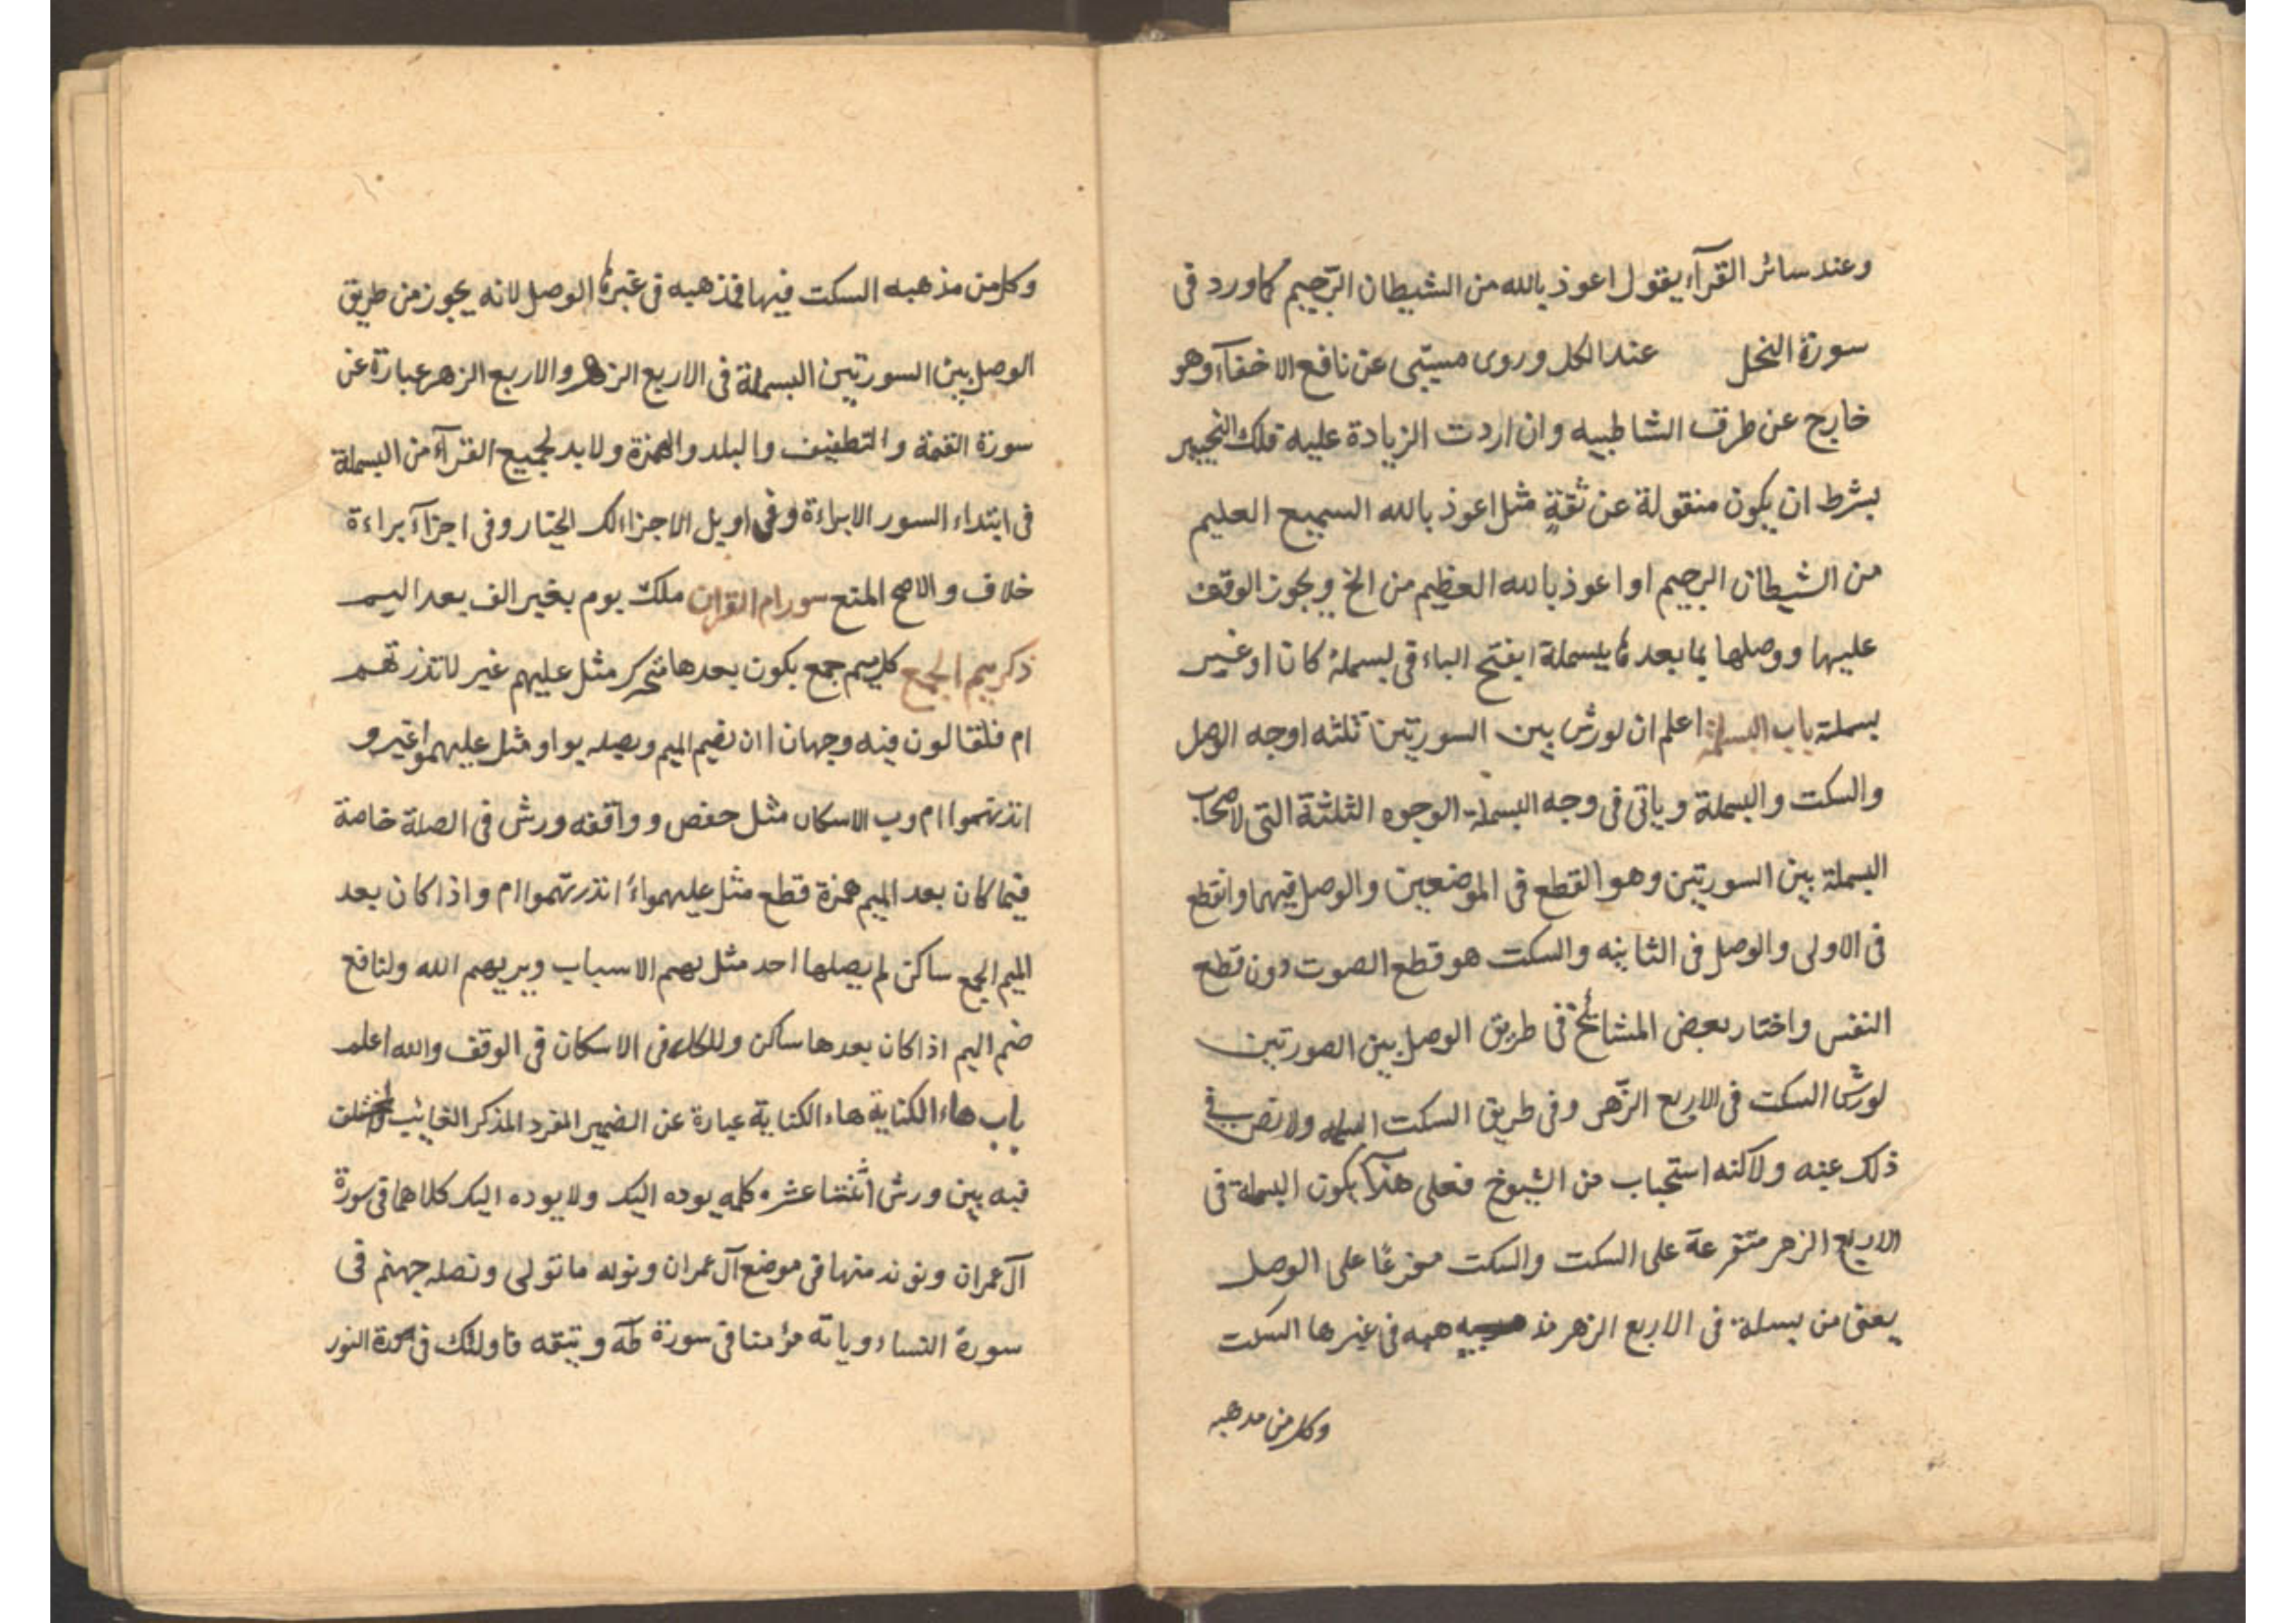 وعند سائر القرآء يقول اعوذ بالله من الشيطان الرّجيم كما ورد فى
سورة النحل عند الكل وروى مسيّبى عن نافع الاخفآء وهو
خارج عن طرق الشاطبيه وان اردت الزيادة عليه فلك التخيير
بشرط ان يكون منقولة عن ثقةٍ مثل اعوذ بالله السميع العليم
من الشيطان الرجيم او اعوذ بالله العظيم من الخ ويجوز الوقف
عليها ووصلها بما بعدها بسملة ابفتح الباء فى بسملة كان او غير
بسملة باب البسملة اعلم ان لورش بين السورتين ثلثه اوجه الوصل
والسكت والبسملة وياتى فى وجه البسملة الوجوه الثلثة التى لاصحاب
البسملة بين السورتين وهو القطع فى الموضعين والوصل فيهما والقطع
فى الاولى والوصل فى الثانيه والسكت هو قطع الصوت دون قطع
النفس واختار بعض المشائخ فى طريق الوصل بين الصورتين
لورش السكت فى الاربع الزّهر وفى طريق السكت ولا نص فى
ذلك عنه ولاكنه استحباب من الشيوخ فعلى هذا يكون البسملة فى
الاربع الزهر متفرعة على السكت والسكت مفرعًا على الوصل
يعنى من بسملة فى الاربع الزهر مذ هبه فى غيرها السكت
وكل من مدهبه
وكل من مذهبه السكت فيها فمذهبه فى غيرها الوصل لانه يجوز من طريق
الوصل بين السورتين البسملة فى الاربع الزهر والاربع الزهر عبارة عن
سورة القيمة والتطفيف والبلد والهمزة ولابد لجميع القرآء من البسملة
فى ابتداء السور الا براءة وفى اويل الاجزا لك الخيتار وفى اجزآء براءة
خلاف والاصح المنع سورام القران ملك يوم بغير الف بعد اليم
ذكر ميم الجمع كل ميم جمع يكون بعدها متحرك مثل عليهم غير لا تذرتهم
ام فلقالون فيه وجهان ا ان يضم الميم ويصله بواو مثل عليهموا غير و
انذرتهموا ام وب الاسكان مثل حفص ووافقه ورش فى الصلة خاصة
فيما كان بعد الميم همزة قطع مثل عليهمواء انذرتهموا ام واذا كان بعد
الميم الجمع ساكن لم يصلها احد مثل بهم الاسباب ويريهم الله ولنافع
ضم اليم اذا كان بعدها ساكن وللكل فى الاسكان فى الوقف والله اعلم
باب هاء الكناية هاء الكناية عبارة عن الضمير المفرد المذكر الغايب
فيه بين ورش اثنتا عشره كلمه يوده اليك ولا يوده اليك كلاهما فى سورة
آل عمران ونوته منها فى موضع آل عمران ونوله ما تولى ونصله جهنم فى
سورة النساء وياته مؤمنا فى سورة طه ويتقه فاولئك فى سورة النور